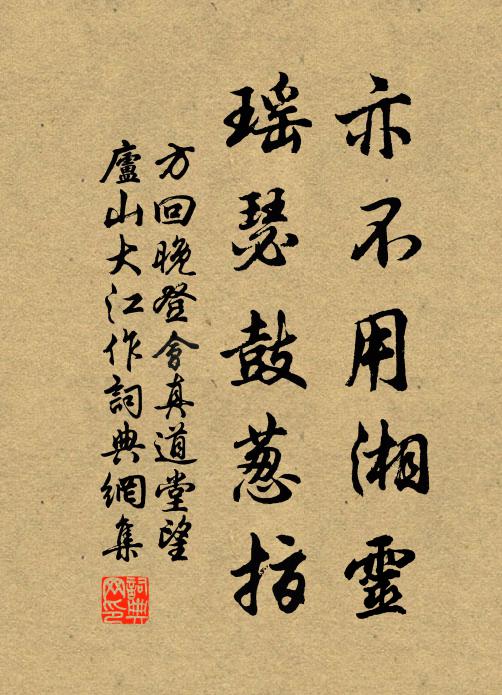 亦不用湘靈
瑶瑟鼓葱指
方回晚登會真道堂望
廬山大江作詞典網集
詞典网印